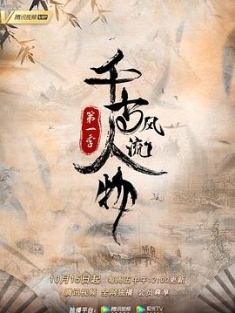 腾讯视频 VIP
千古风流人物
第一季
10月15日起 每周五中午12:00更新
腾讯视频 全网独播 会员尊享
独播平台: 腾讯视频 极光TV